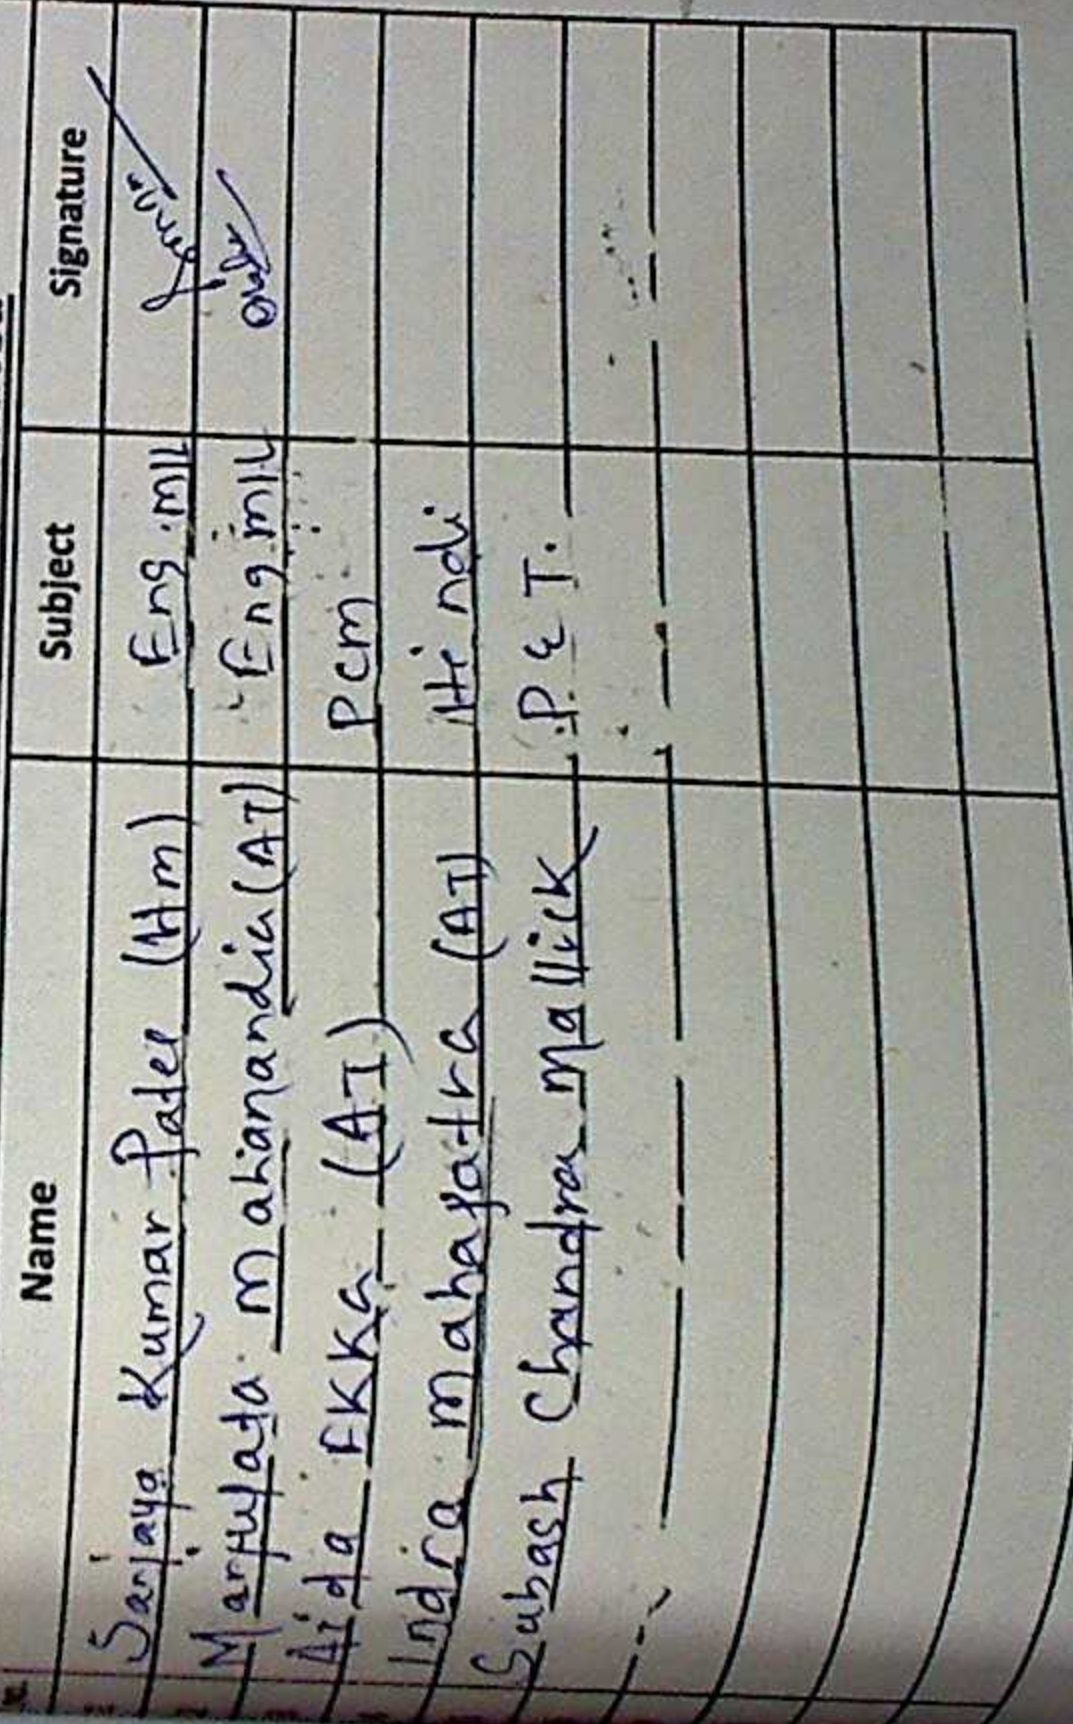 Name Subject Signature
Sanjaya Kumar Patel (Hm) Eng.MIL
mahanandia (AT) Eng.MIL
Aida EKKa (AT) PCM
Indra Mahapatra (AT) Hindi
Subash Chandra Mallick P.E.T.